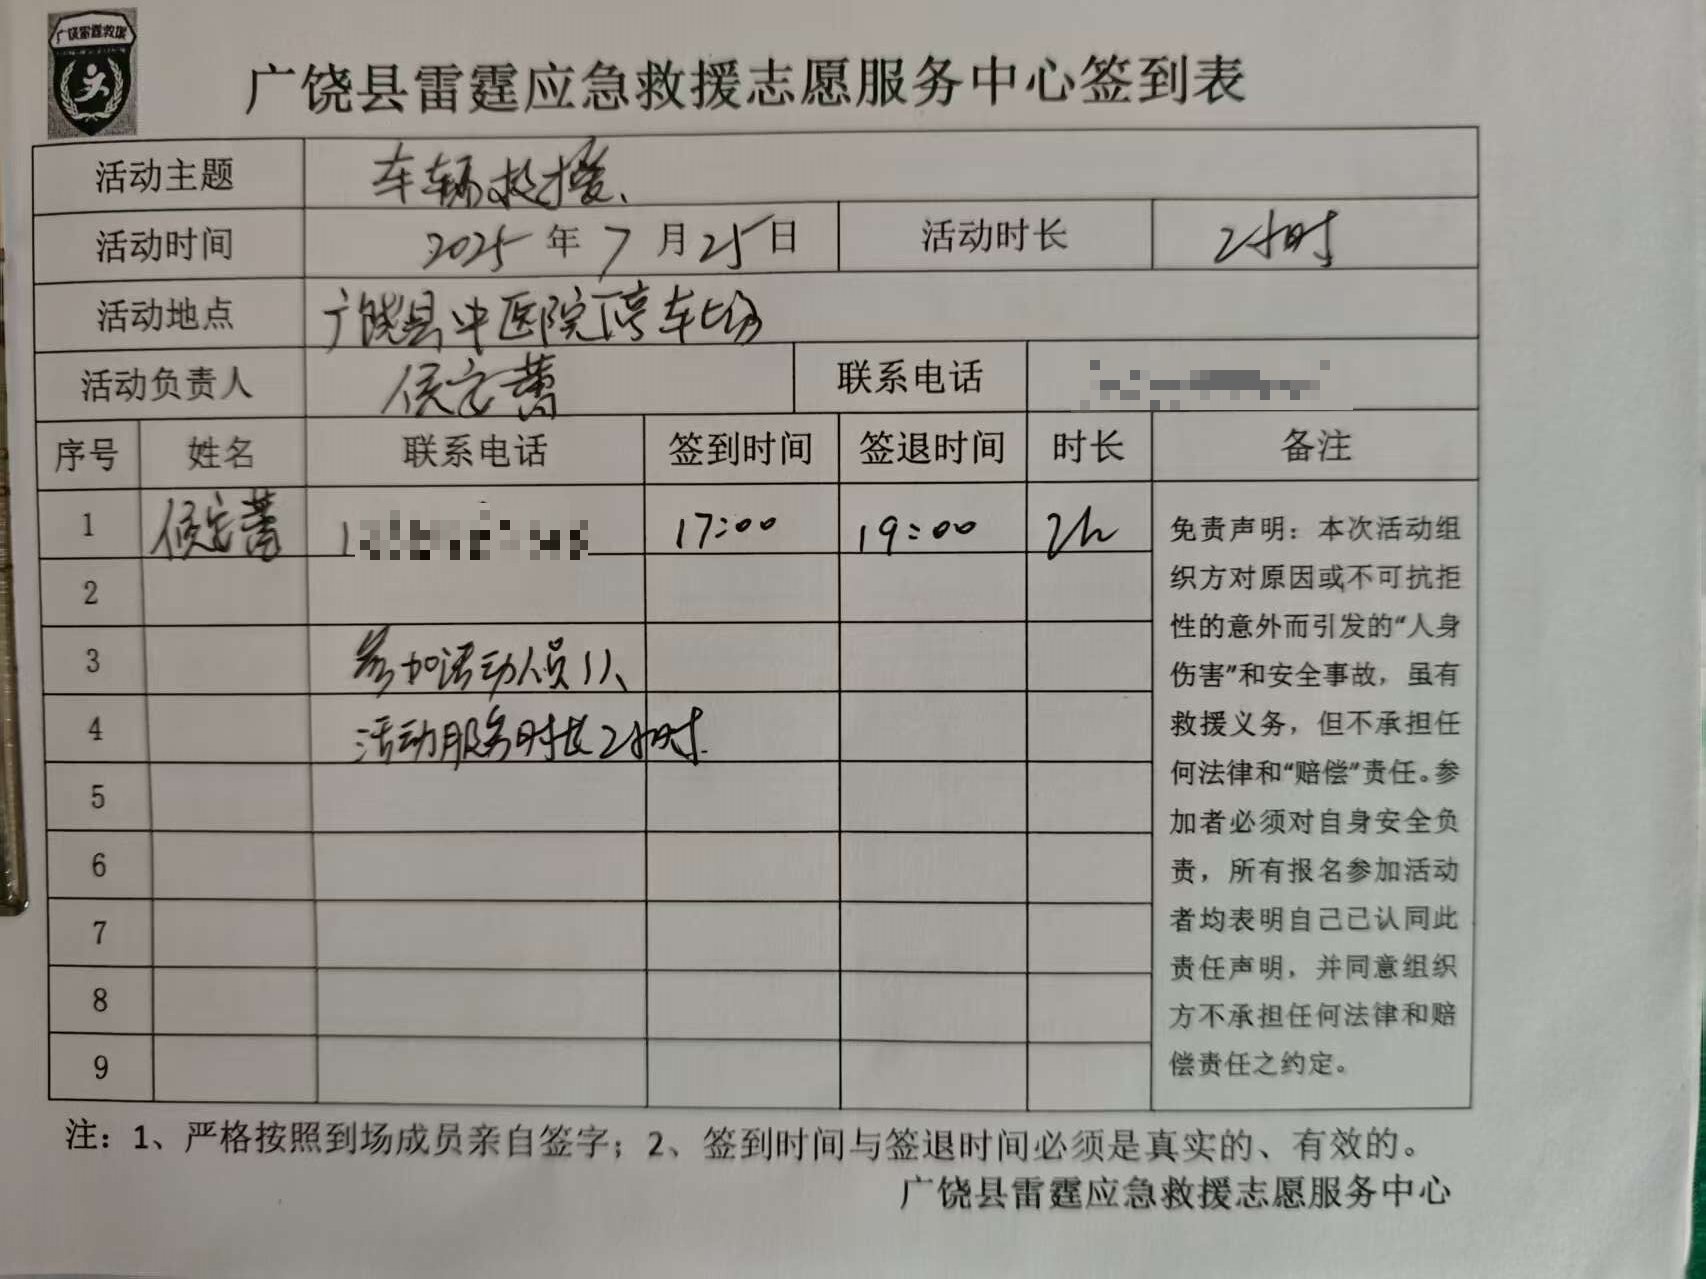 广饶雷霆救援
广饶县雷霆应急救援志愿服务中心签到表
活动主题 车辆救援、
活动时间 2025年7月25日 活动时长 2小时
活动地点 广饶县中医院停车场
活动负责人 侯安蕾 联系电话
序号 姓名 联系电话 签到时间 签退时间 时长 备注
1 侯安蕾 1 17:00 19:00 2h
2
3 参加活动人员1人、
4 活动服务时长2小时.
5
6
7
8
9
免责声明：本次活动组
织方对原因或不可抗拒
性的意外而引发的“人身
伤害”和安全事故，虽有
救援义务，但不承担任
何法律和“赔偿”责任。参
加者必须对自身安全负
责，所有报名参加活动
者均表明自己已认同此
责任声明，并同意组织
方不承担任何法律和赔
偿责任之约定。
注：1、严格按照到场成员亲自签字；2、签到时间与签退时间必须是真实的、有效的。
广饶县雷霆应急救援志愿服务中心